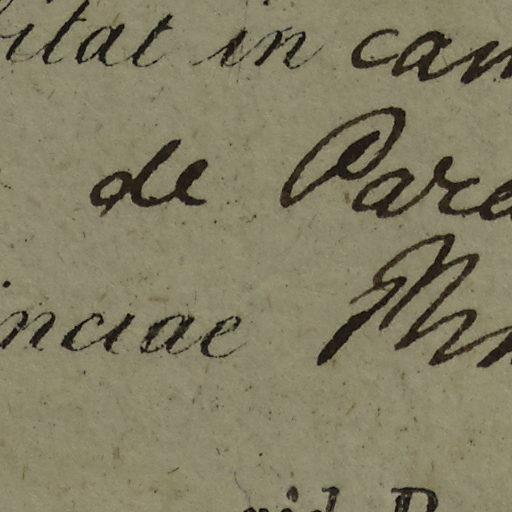 itat in cam
de Para
inciae Min